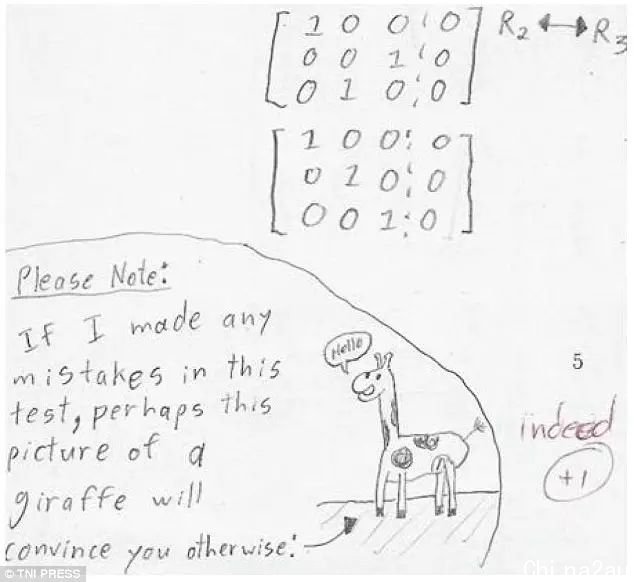 1 0 0 0 R2 ↔ R3
0 0 1 0
0 1 0 0
1 0 0 0
0 1 0 0
0 0 1 0
Please Note:
If I made any
mistakes in this
test, perhaps this
picture of a
giraffe will
convince you otherwise:
Hello
5
indeed
+1
© TNI PRESS